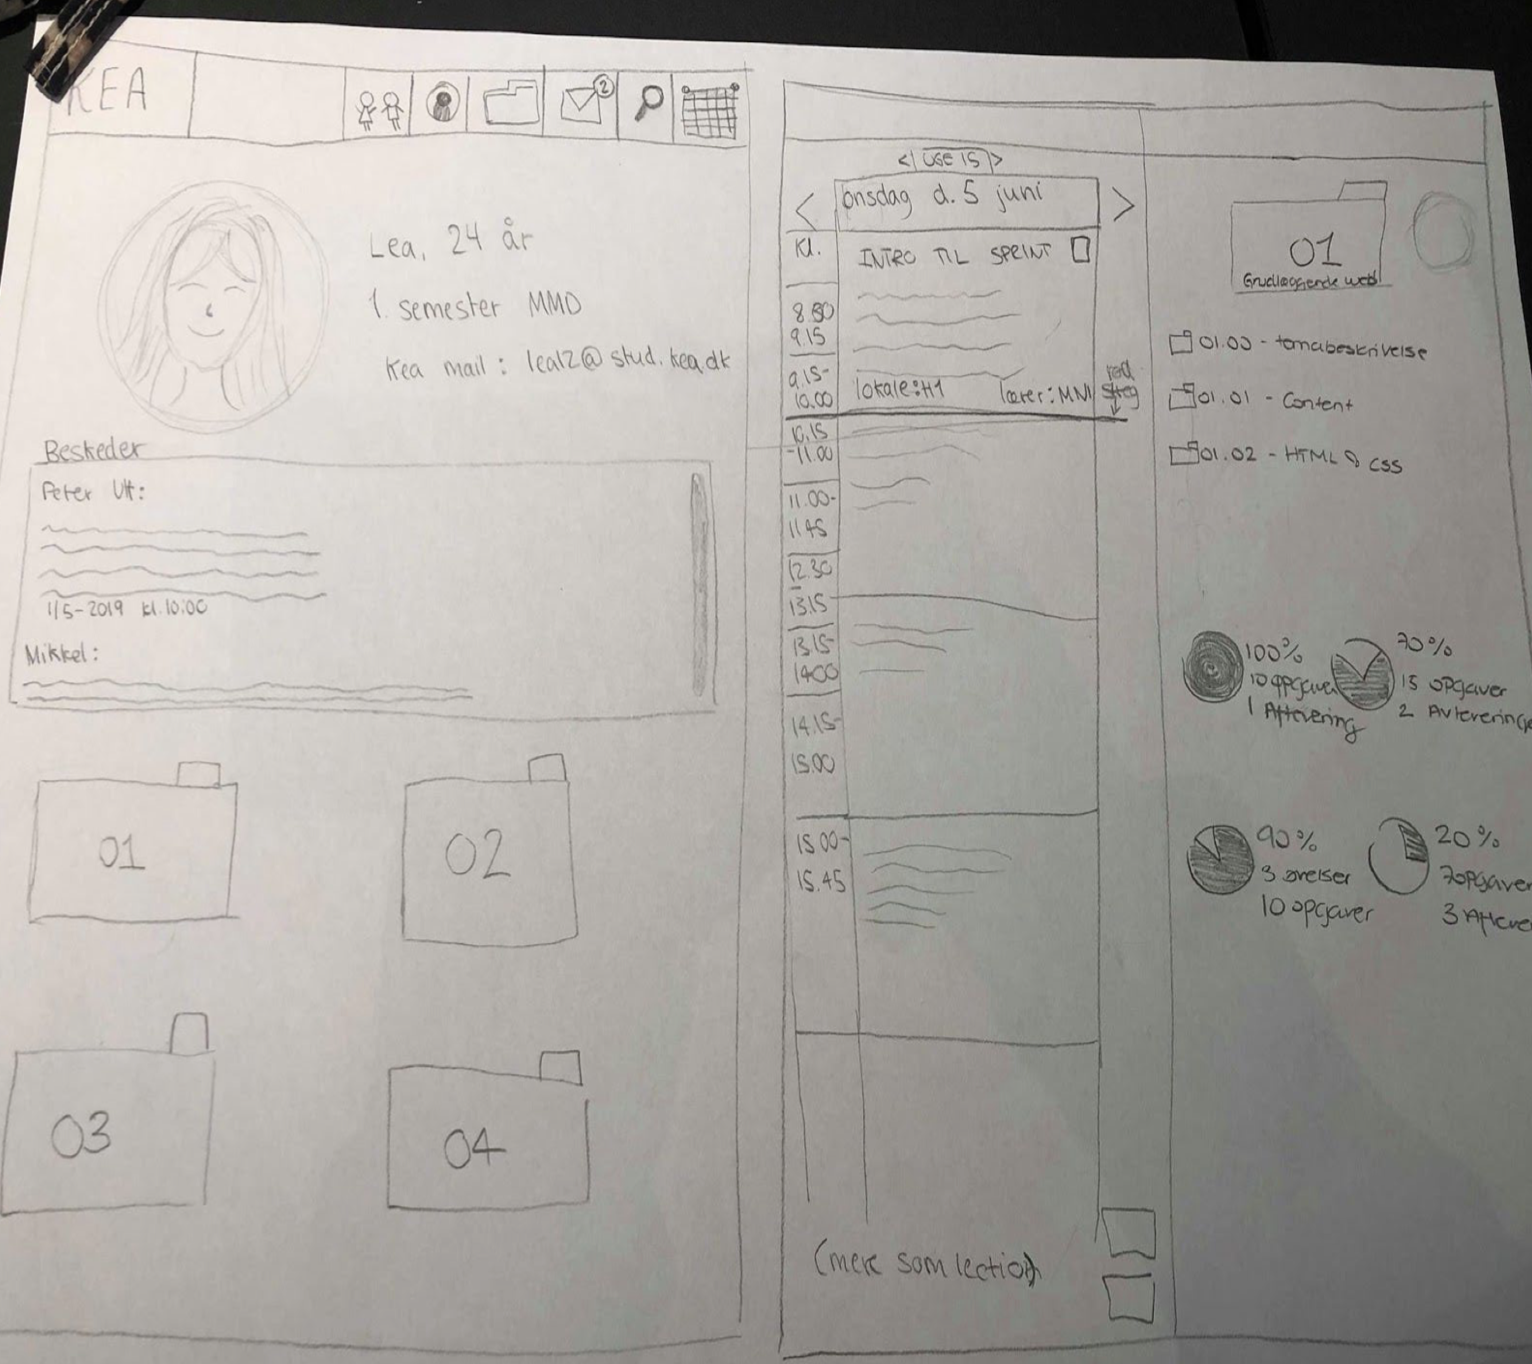 KEA
2
Lea, 24 år
1. semester MMD
Kea mail: lea12@stud.kea.dk
Beskeder
Peter Ulf:
1/5-2019 kl.10:00
Mikkel:
01
02
03
04
< UGE 15 >
< onsdag d. 5 juni >
Kl.
INTRO TIL SPRINT
8.30
9.15
9.15-
10.00
lokale: H1 lærer: MNI
rød
streg
10.15
-11.00
11.00-
11.45
12.30
-
13.15
13.15-
14.00
14.15-
15.00
15.00-
15.45
(mere som lectio)
01
Grudlæggende web
01.00 - temabeskrivelse
01.01 - Content
01.02 - HTML & CSS
100%
10 opgaver
1 Aflevering
70%
15 opgaver
2 Avleveringe
90%
3 øvelser
10 opgaver
20%
7 opgaver
3 Afleve